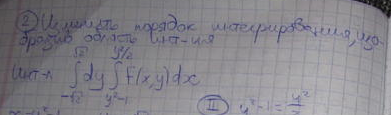 ② Изменить порядок интегрирования, изо-
бразив область инт-ия
Инт-л ∫_{-√2}^{√2} dy ∫_{y²-1}^{y²/2} F(x,y)dx
II y²-1 = y²/2